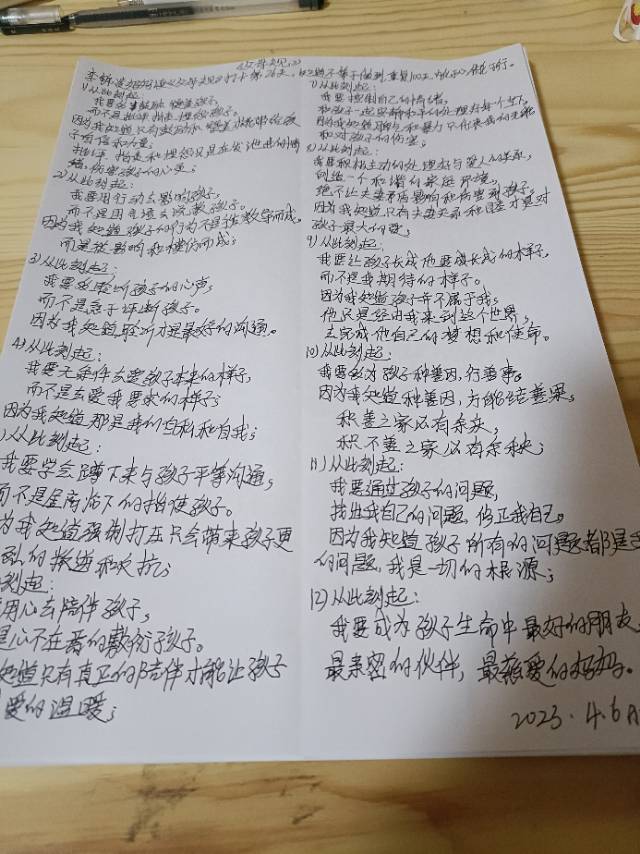 父母规(2)
李 波 父母规打卡第26天,知道不等于做到,重复100天,
1)从此刻起:
我要多鼓励,赞美孩子,
而不是批评、指责、埋怨孩子。
因为我知道只有鼓励和赞美才能带给孩
子自信和力量;
批评、指责和埋怨只是在发泄我的情
绪,伤害孩子的心灵;
2)从此刻起:
我要用行动去影响孩子,
而不是用言语去说教孩子。
因为我知道孩子的行为不是教导而成,
而是被影响和模仿而成;
3)从此刻起:
我要多聆听孩子的心声,
而不是急于评断孩子。
因为我知道聆听才是最好的沟通。
4)从此刻起:
我要无条件去爱孩子本来的样子,
而不是去爱我要求的样子;
因为我知道那是我的自私和自我;
)从此刻起:
我要学会蹲下来与孩子平等沟通,
而不是居高临下的指使孩子。
为我知道强制打压只会带来孩子更
的叛逆和反抗;
刻起:
用心去陪伴孩子,
是心不在焉的敷衍孩子。
知道只有真正的陪伴才能让孩子
爱的温暖;
7)从此刻起:
我要控制自己的情绪,
和孩子一起安静和平的处理好每个当下,
因为我知道 和暴力只代表我的无能
和对孩子的伤害;
8)从此刻起:
我要积极主动的处理好与爱人的关系,
创造一个和谐的家庭环境,
绝不让夫妻矛盾影响和伤害到孩子,
因为我知道只有夫妻关系和睦才是对
孩子最大的爱;
9)从此刻起:
我要让孩子长成他要成长成的样子,
而不是我期待的样子。
因为我知道孩子并不属于我;
他只是经由我来到这个世界,
去完成他自己的梦想和使命。
10)从此刻起:
我要多为孩子种善因,行善事。
因为我知道种善因,方能结善果,
积善之家必有余庆,
积不善之家必有余殃;
11)从此刻起:
我要通过孩子的问题,
找出我自己的问题,修正我自己。
因为我知道孩子所有的问题都是我
的问题,我是一切的根源;
12)从此刻起:
我要成为孩子生命中最好的朋友,
最亲密的伙伴,最慈爱的妈妈。
2023.4.6日